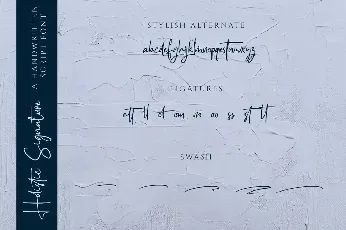 Holistic Signature
A HANDWRITTEN
SCRIPT FONT
STYLISH ALTERNATE
abcdefghijklmnopqrstuvwxyz
LIGATURES
SWASH